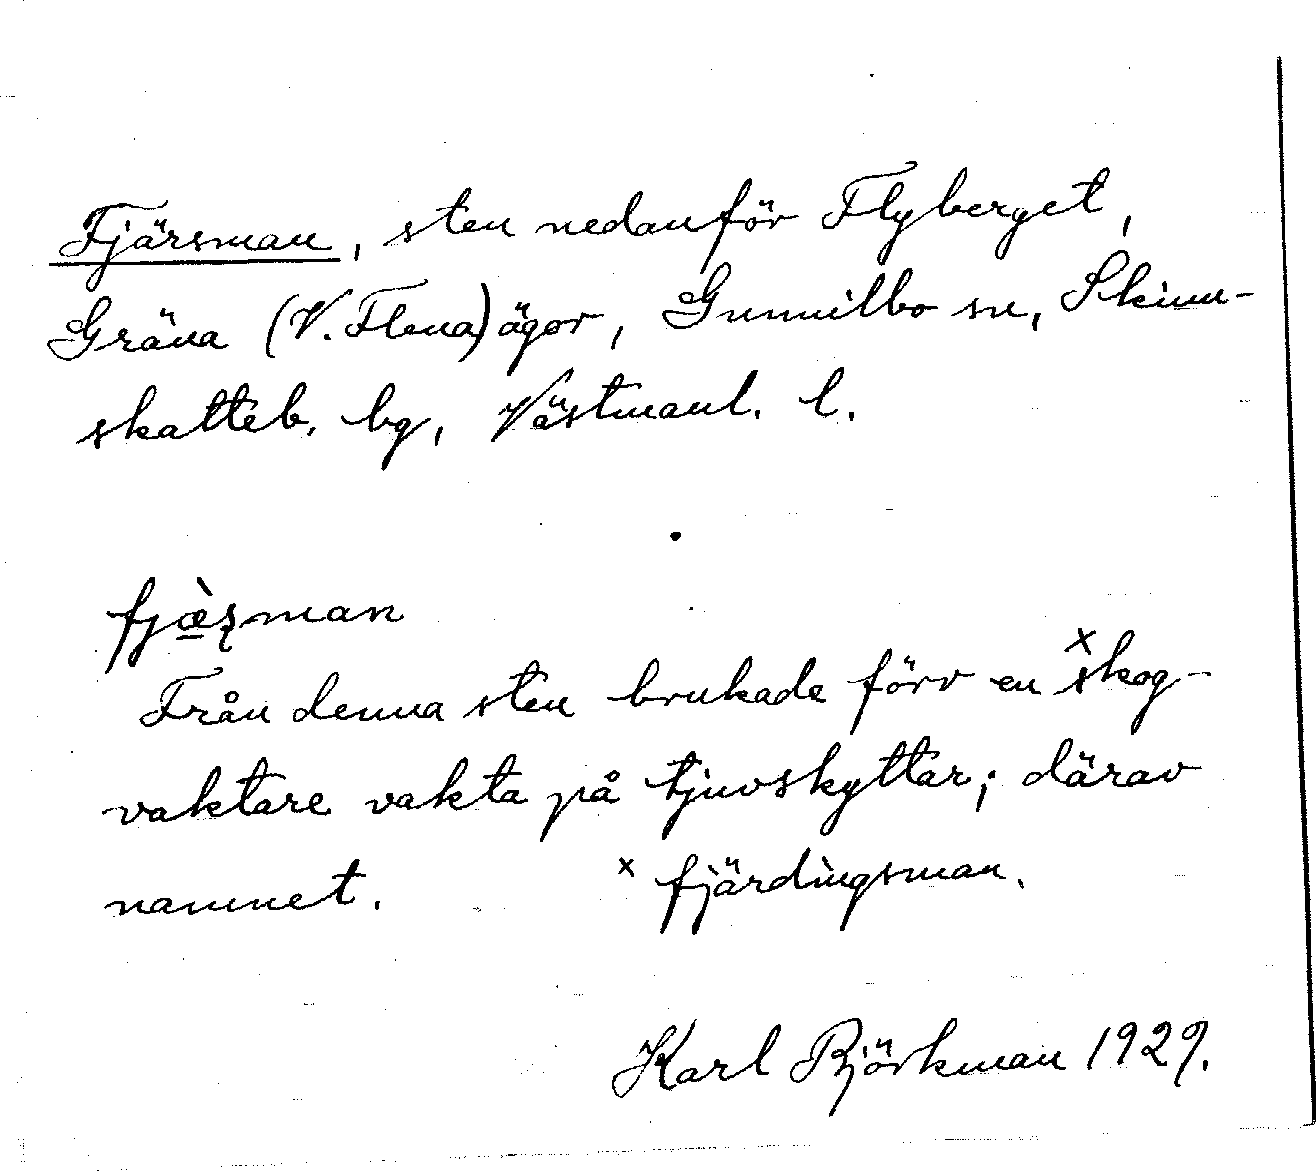 Fjärsman, sten nedanför Flyberget,
Gräna (V. Flena) ägor, Gunnilbo sn, Skinn-
skatteb. bg, Västmanl. l.
fjæ̲̀ʂman
Från denna sten brukade förr en ˣskog-
vaktare vakta på tjuvskyttar; därav
namnet. ˣ fjärdingsman.
Karl Björkman 1929.